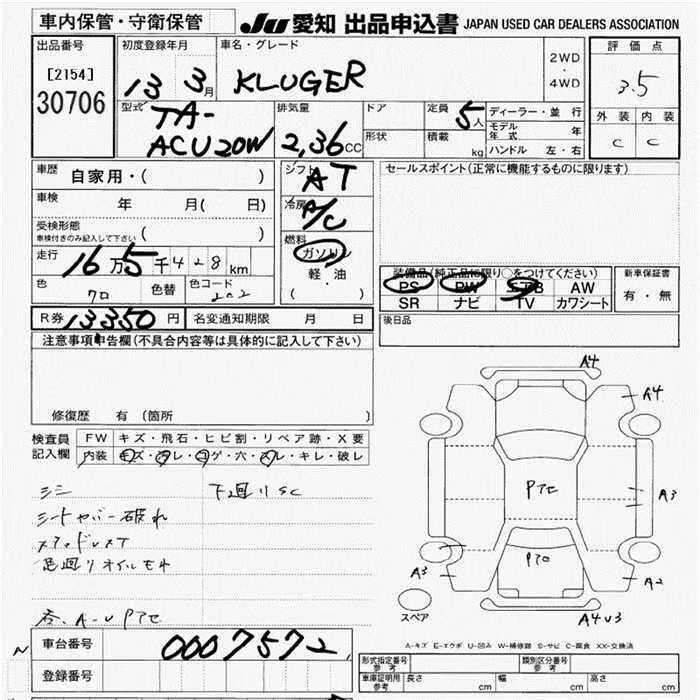 車内保管・守衛保管
JU 愛知 出品申込書 JAPAN USED CAR DEALERS ASSOCIATION
出品番号
[2154]
30706
初度登録年月
13 3月
車名・グレード
KLUGER
2WD
・
4WD
評価点
3.5
外装 内装
C C
型式
TA-
ACU20W
排気量
2,36 CC
ドア
形状
定員
5人
積載
kg
ディーラー・並行
モデル年式 年
ハンドル 左・右
車歴
自家用・( )
車検
年 月( 日)
受検形態
車検付きのみ記入して下さい ( )
走行
16万5千428km
色
クロ
色替
色コード
202
シフト
AT
冷房
A/C
燃料
ガソリン
軽・油
( )
セールスポイント(正常に機能するものに限ります)
装備品(純正品に限り○をつけてください)
PS PW エアB AW
SR ナビ TV カワシート
新車保証書
有・無
R券 13350円 名変通知期限 月 日
後日品
注意事項申告欄(不具合内容等は具体的に記入して下さい)
修復歴 有 (箇所 )
検査員
記入欄
FW キズ・飛石・ヒビ割・リペア跡・X要
内装 キズ・ヨゴレ・コゲ・穴・スレ・キレ・破レ
シミ
下廻りSC
シートカバー破れ
足廻りオイルモレ
A4
A4
A3
A3
A2
A4U3
Pアセ
スペア
A-キズ E-エクボ U-凹み W-補修跡 S-サビ C-腐食 XX-交換済
車台番号 0007572
登録番号
型式指定番号
参考
類別区分番号
参考
車庫証明用
参考
長さ cm 幅 cm 高さ cm